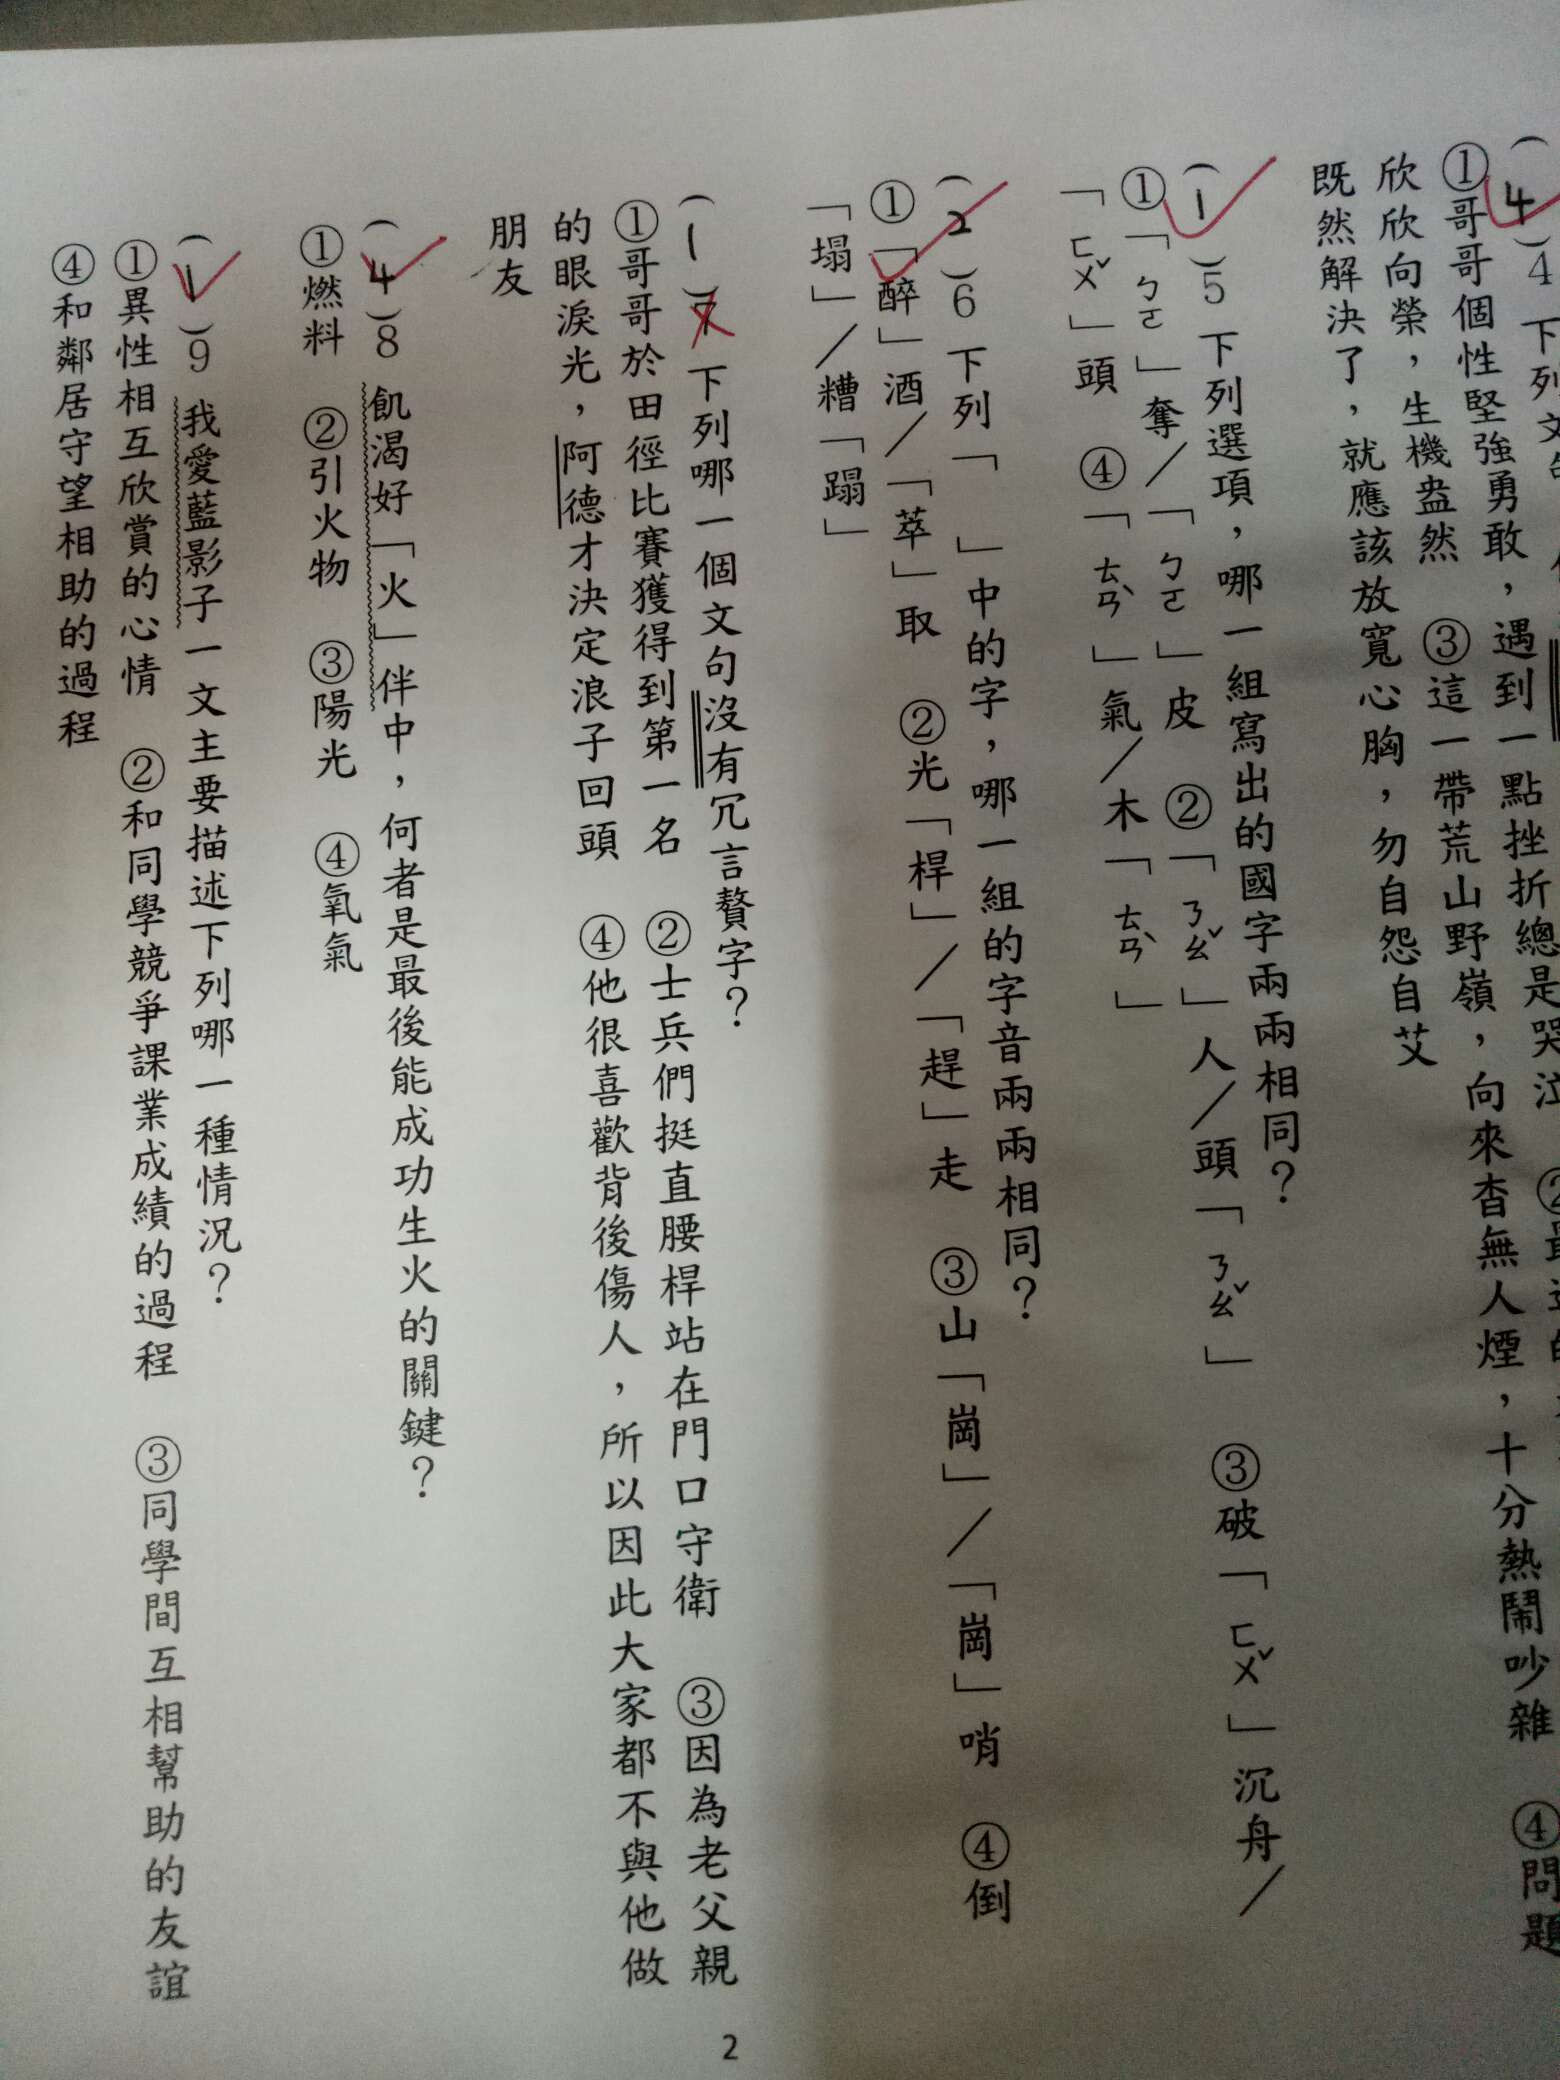 (4)4 下列文句
①哥哥個性堅強勇敢，遇到一點挫折總是哭泣 ②
欣欣向榮，生機盎然 ③這一帶荒山野嶺，向來杳無人煙，十分熱鬧吵雜 ④問題
既然解決了，就應該放寬心胸，勿自怨自艾
(1)5 下列選項，哪一組寫出的國字兩兩相同？
①「ㄅㄛ」奪／「ㄅㄛ」皮 ②「ㄋㄠˇ」人／頭「ㄋㄠˇ」 ③破「ㄈㄨˇ」沉舟／
「ㄈㄨˇ」頭 ④「ㄊㄢˋ」氣／木「ㄊㄢˋ」
(2)6 下列「 」中的字，哪一組的字音兩兩相同？
①「醉」酒／「萃」取 ②光「桿」／「趕」走 ③山「崗」／「崗」哨 ④倒
「塌」／糟「蹋」
(1)7 下列哪一個文句沒有冗言贅字？
①哥哥於田徑比賽獲得到第一名 ②士兵們挺直腰桿站在門口守衛 ③因為老父親
的眼淚光，阿德才決定浪子回頭 ④他很喜歡背後傷人，所以因此大家都不與他做
朋友
(4)8 飢渴好「火」伴中，何者是最後能成功生火的關鍵？
①燃料 ②引火物 ③陽光 ④氧氣
(1)9 我愛藍影子一文主要描述下列哪一種情況？
①異性相互欣賞的心情 ②和同學競爭課業成績的過程 ③同學間互相幫助的友誼
④和鄰居守望相助的過程
2